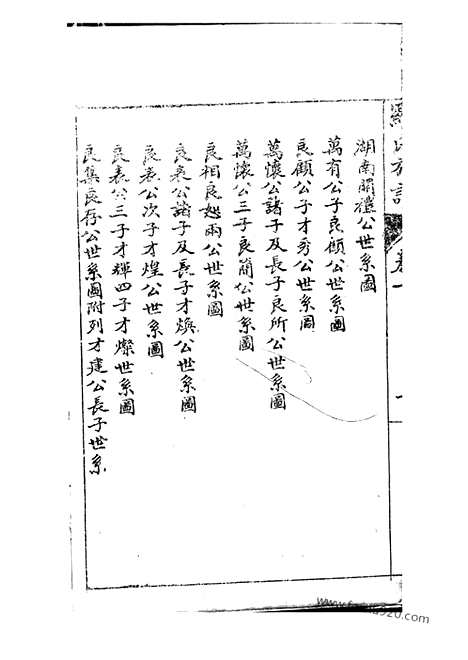 羅氏族譜 卷一
湖南開禮公世系圖
萬有公子良顧公世系圖
良顧公子才秀公世系圖
萬懷公諸子及長子良所公世系圖
萬懷公三子良簡公世系圖
良相良恕兩公世系圖
良表公諸子及長子才煥公世系圖
良表公次子才煌公世系圖
良表公三子才輝四子才燦世系圖
良集良存公世系圖附列才建公長子世系